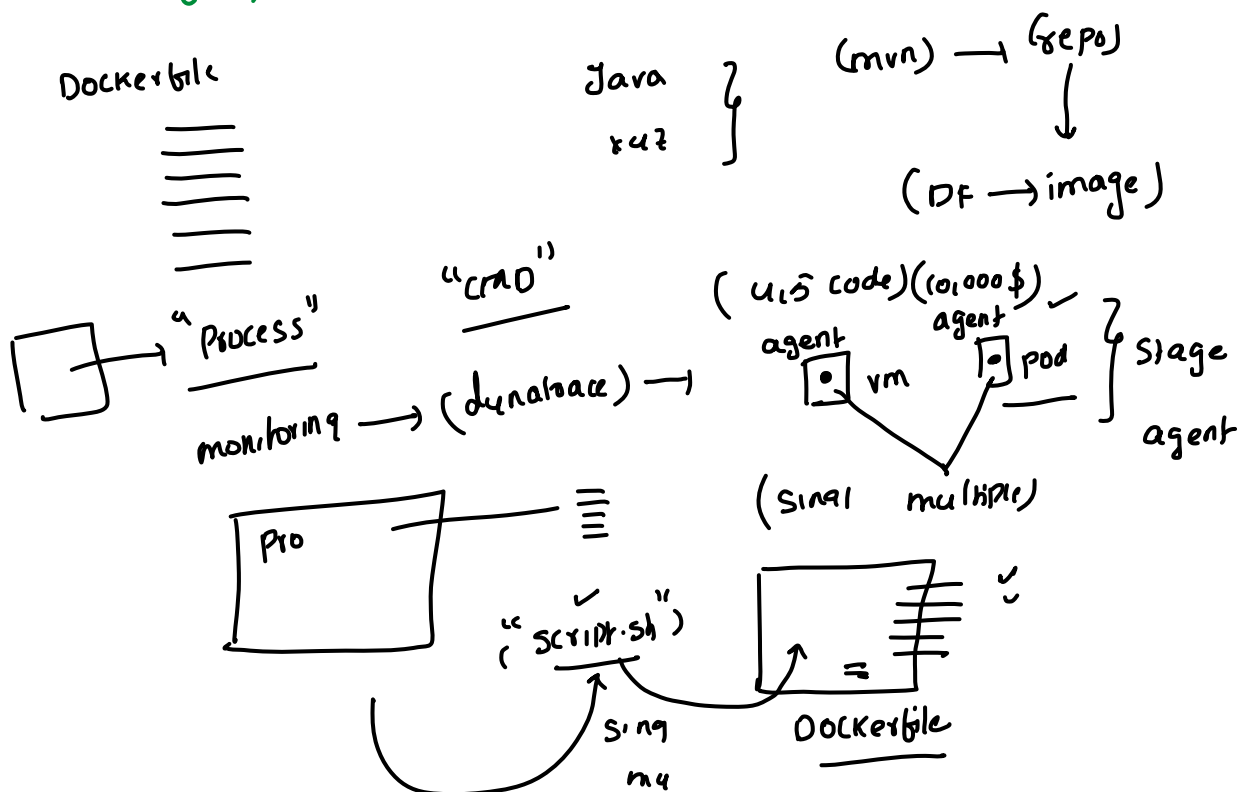 Dockerfile
Java
xyz
(mvn) → (repo)
(DF → image)
"Process"
"CMD"
(4,5 code) (10,000$)
agent
agent
vm
pod
Stage
agent
monitoring → (dynatrace) →
(Singl multiple)
Pro
("script.sh")
Sing
mu
Dockerfile